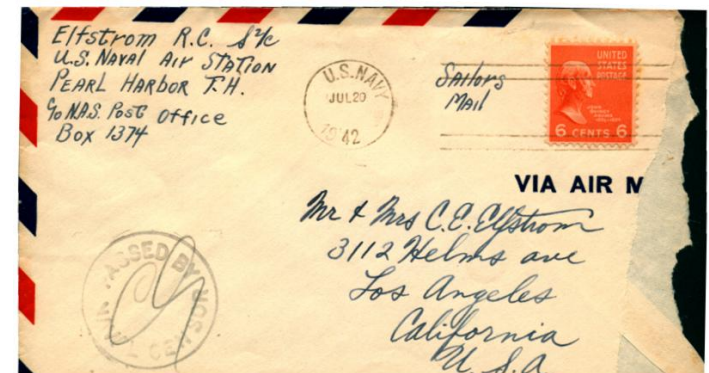 Elfstrom R.C. S2/c
U.S. Naval Air Station
Pearl Harbor T.H.
c/o N.A.S. Post Office
Box 1374
U.S. NAVY
JUL 20
1942
Sailors
Mail
UNITED
STATES
POSTAGE
6 CENTS 6
VIA AIR M
Mr & Mrs C.E. Elfstrom
3112 Helms ave
Los Angeles
California
U.S.A.
PASSED BY
NAVAL CENSOR